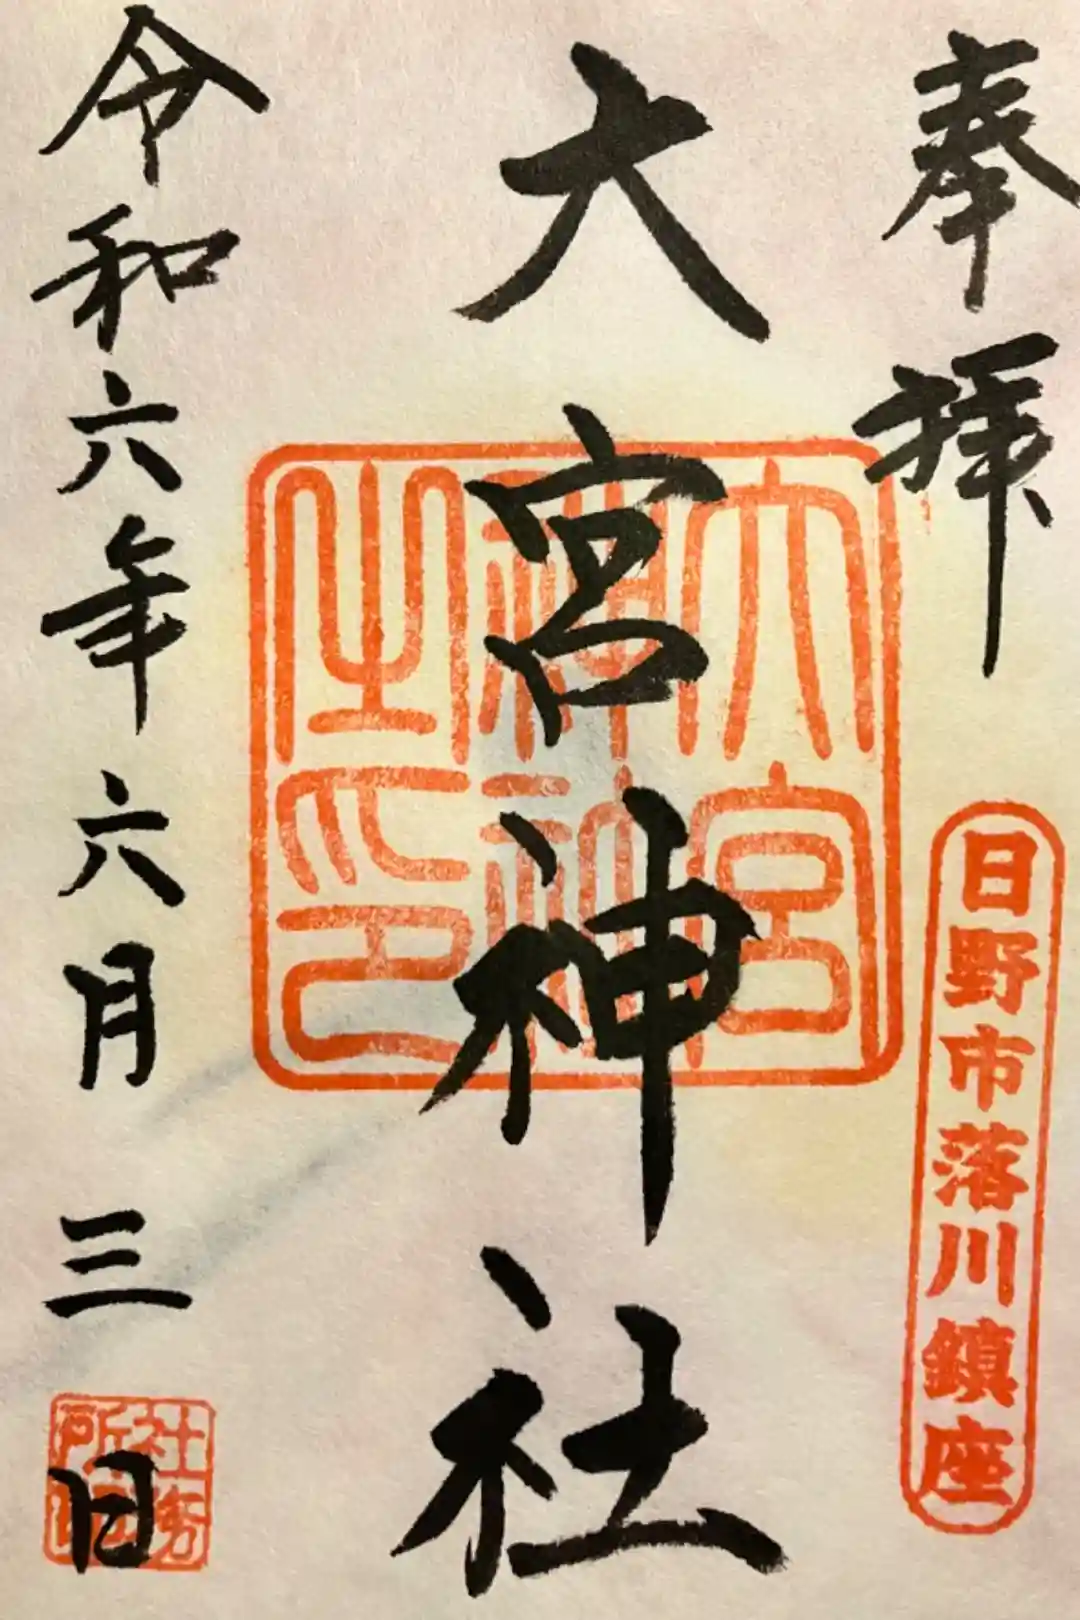 奉拝
日野市落川鎮座
大宮神社
大宮
神社
之印
令和六年六月三日
社務
所印